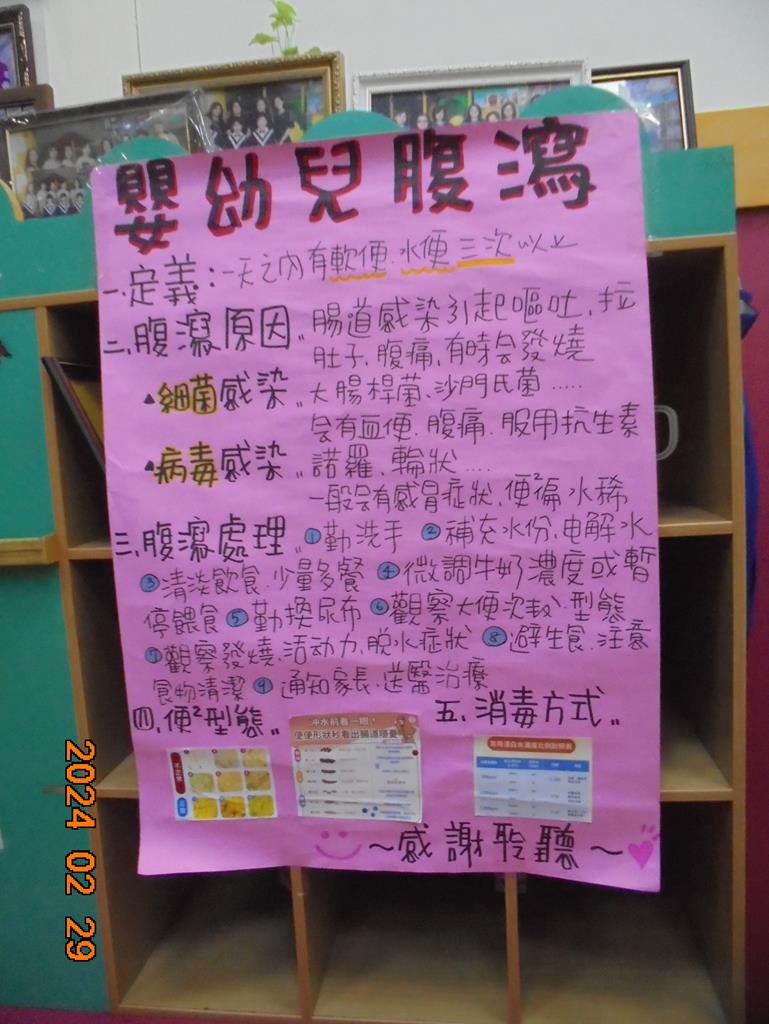 嬰幼兒腹瀉
一.定義：一天之內有軟便.水便三次以上
二.腹瀉原因..腸道感染引起嘔吐、拉
肚子、腹痛、有時会發燒
▲細菌感染..大腸桿菌、沙門氏菌.....
会有血便.腹痛.服用抗生素
▲病毒感染..諾羅、輪狀....
一般会有感冒症狀、便²偏水稀
三.腹瀉處理..①勤洗手 ②補充水份、电解水
③清淡飲食.少量多餐 ④微調牛奶濃度或暫
停餵食 ⑤勤換尿布 ⑥觀察大便次数、型態
⑦觀察發燒、活动力、脱水症狀 ⑧避生食、注意
食物清潔 ⑨通知家長、送醫治療
四.便²型態..
五.消毒方式..
不正常
正常
沖水前看一眼！
便便形狀秒看出腸道隱憂
常用漂白水濃度比例對照表
～感謝聆聽～
2024 02 29